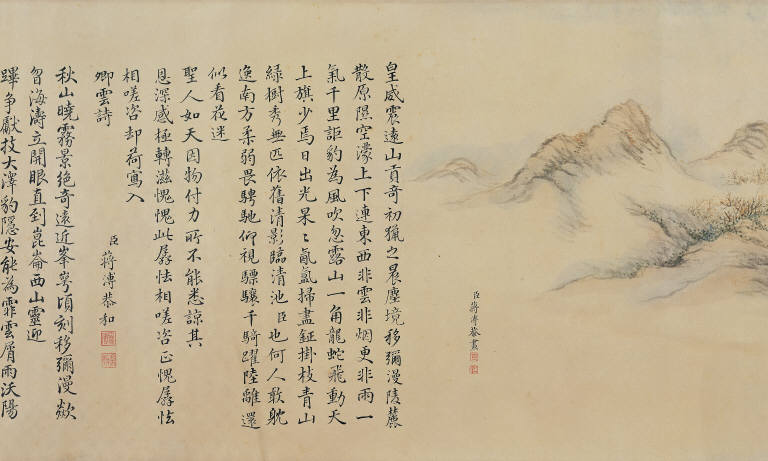 臣蔣溥恭畫
皇威震遠山貢奇初獵之晨塵境移彌漫陵麓
散原隰空濛上下連東西非雲非烟更非雨一
氣千里詎豹為風吹忽露山一角龍蛇飛動天
上旗少焉日出光杲杲氤氳掃盡鉦掛枝青山
綠樹秀無匹依舊清影臨清池臣也何人敢躭
逸南方柔弱畏騁馳仰視驃驤千騎躍陸離還
似看花迷
聖人如天因物付力所不能悉諒其
恩深感極轉滋愧愧此孱怯相嗟咨正愧孱怯
相嗟咨却荷寫入
卿雲詩
臣蔣溥恭和
秋山曉霧景絕奇遠近峯岑頃刻移彌漫欻
曶海濤立開眼直到崑崙西山靈迎
蹕爭獻技大澤豹隱安能為霏雲屑雨沃陽